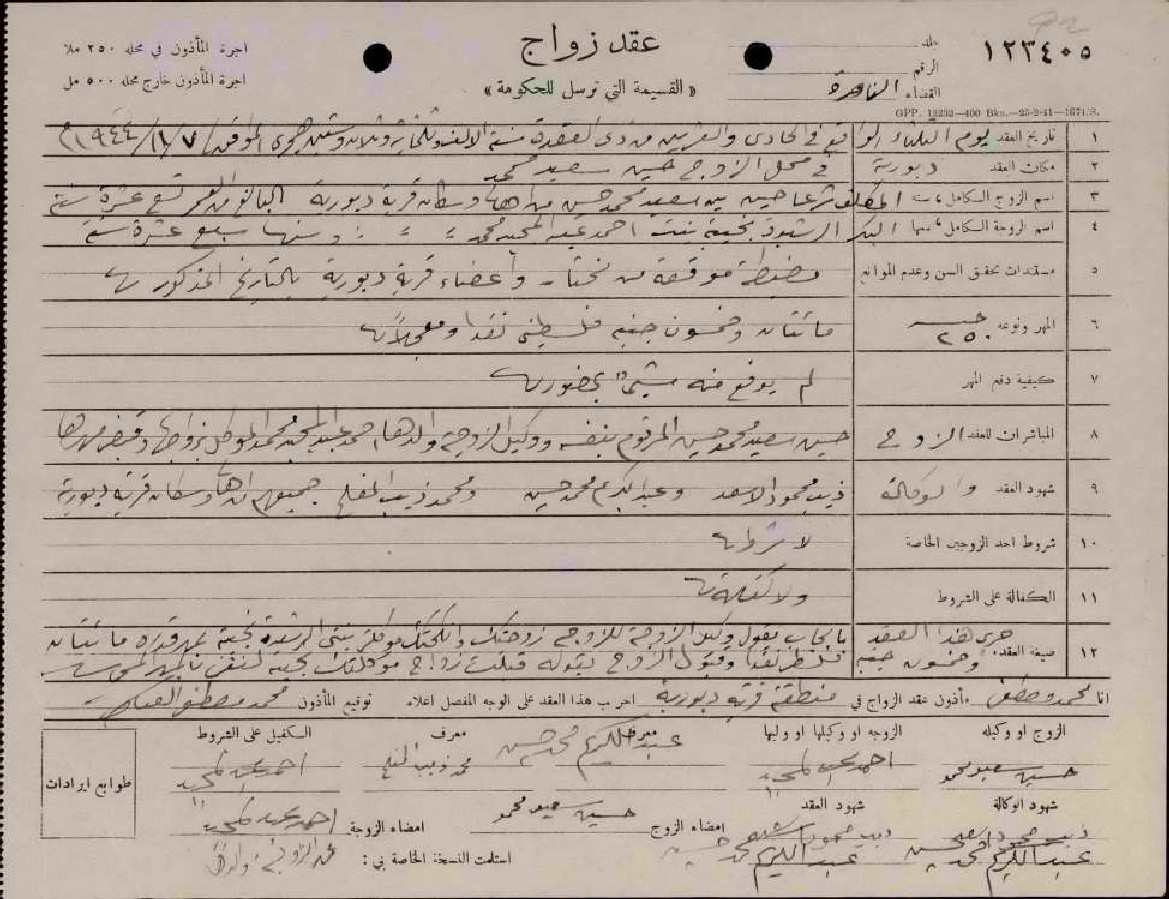 عقد زواج
« القسيمة التي ترسل للحكومة »
اجرة المأذون في محله ٢٥٠ ملا
اجرة المأذون خارج محله ٥٠٠ مل
١٢٣٤٠٥
جلد
الرقم
القضاء الناصرة
GPP. 12232—400 Bks.—25-2-41—1671/S.
١ تاريخ العقد يوم الثلثاء الواقع في الحادي والعشرين من ذي القعدة سنة الالف وثلثماية وثلاث وستين هجري الموافق ٧/١١/١٩٤٤ م
٢ مكان العقد دبورية في محل الزوج حسين سعيد محمد
٣ اسم الزوج الكامل، سنه المكلف شرعا حسين بن سعيد محمد حسين من اهالي وسكان قرية دبورية البالغ من العمر تسع عشرة سنة
٤ اسم الزوجة الكامل، سنها البكر الرشيدة نجية بنت احمد عبد المجيد محمد وسنها سبع عشرة سنة
٥ مستندات تحقق السن وعدم الموانع مضبطة موقعة من مختار وأعضاء قرية دبورية بالتاريخ المذكور
٦ المهر ونوعه ٢٥٠ مائتان وخمسون جنيه فلسطيني نقدا ومعجلا
٧ كيفية دفع المهر لم يدفع منه شيء بحضورنا
٨ المباشران للعقد الزوج حسين سعيد محمد حسين المرقوم بنفسه ووكيل الزوجة والدها احمد عبد المجيد محمد الموكل بزواجها وقبض مهرها
٩ شهود العقد والوكالة ذيب محمود الاسعد وعبد الكريم محمد حسين ومحمد ذيب المفلح جميعهم من اهالي وسكان قرية دبورية
١٠ شروط احد الزوجين الخاصة لا شروط
١١ الكفالة على الشروط ولا كفالة
١٢ صيغة العقد، جرى هذا العقد بايجاب بقول وكيل الزوجة للزوج زوجتك وانكحتك موكلتي بنتي الرشيدة نجية بمهر قدره مائتان
وخمسون جنيه فلسطيني نقدا وقبول الزوج بقوله قبلت زواج موكلتك نجية لنفسي بالمهر المسمى
انا محمد مصطفى مأذون عقد الزواج في منطقة قرية دبورية اجريت هذا العقد على الوجه المفصل اعلاه توقيع المأذون محمد مصطفى
الزوج او وكيله الزوجه او وكيلها او وليها معرف معرف الكفيل على الشروط
حسين سعيد محمد احمد عبد المجيد عبد الكريم محمد حسين محمد ذيب المفلح احمد عبد المجيد
طوابع ايرادات
شهود الوكالة شهود العقد امضاء الزوج حسين سعيد محمد امضاء الزوجة احمد عبد المجيد
ذيب محمود اسعد ذيب محمود اسعد
عبد الكريم محمد حسين عبد الكريم محمد حسين
استلمت النسخة الخاصة بي : عن الزوجة والدها